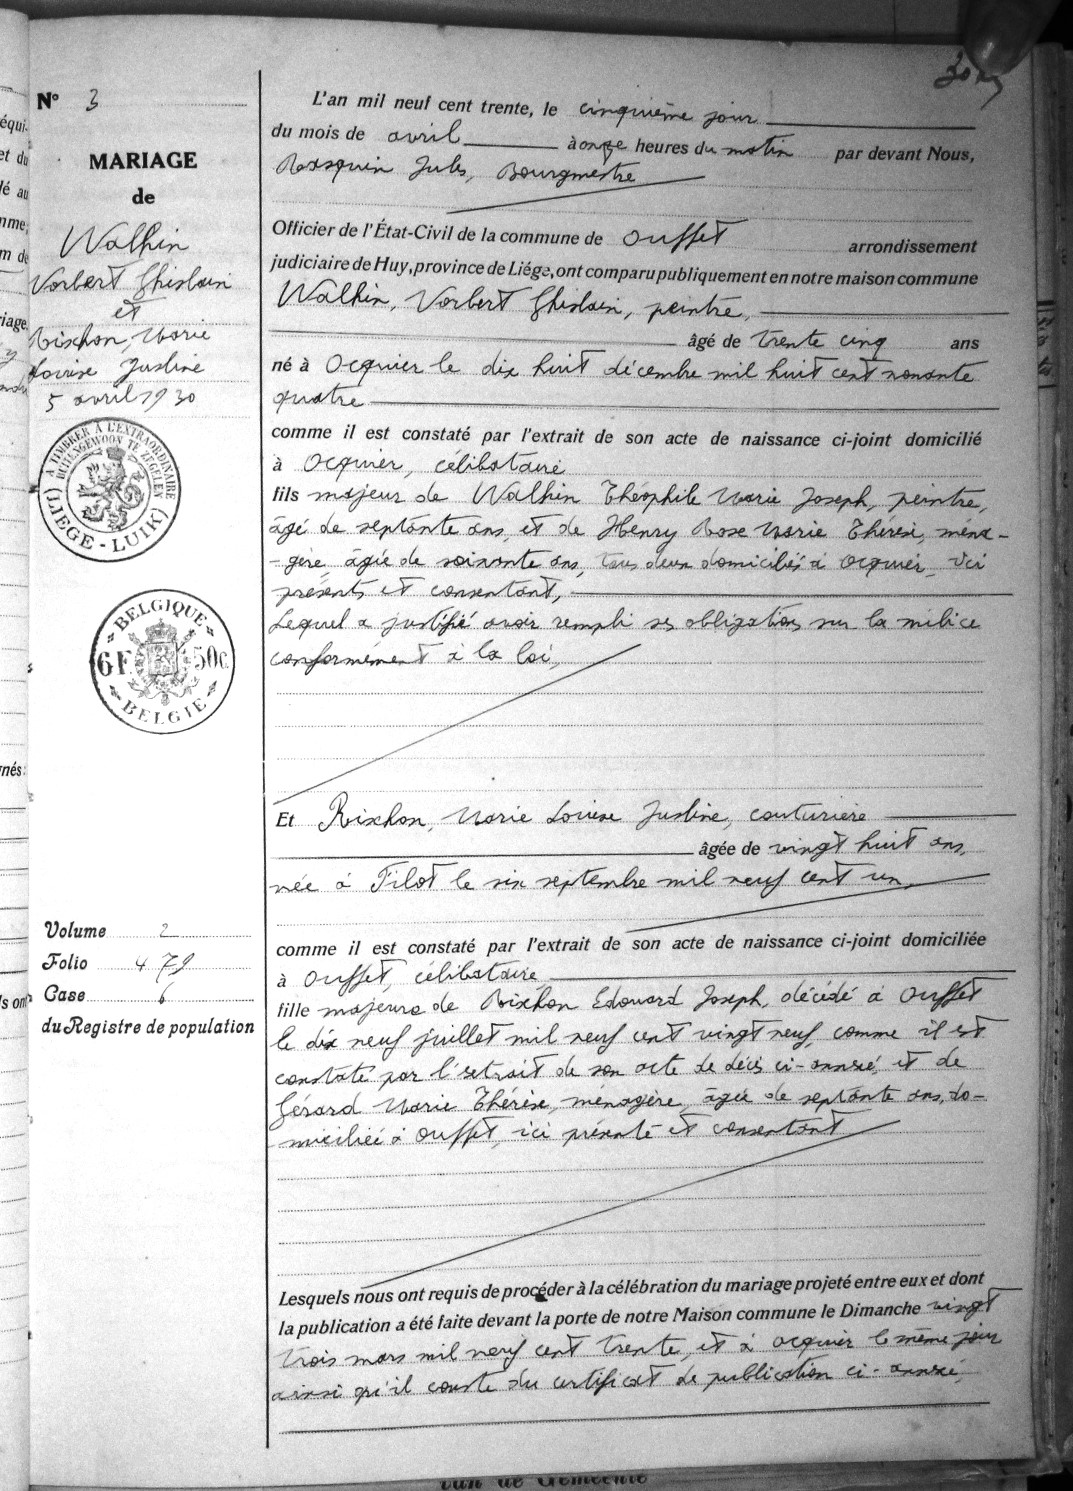 N° 3
MARIAGE
de
Walhin
Norbert Ghislain
et
Rixhon, Marie
Louise Justine
5 avril 1930
A TIMBRER A L'EXTRAORDINAIRE
BUITENGEWOON TE ZEGELEN
(LIEGE-LUIK)
BELGIQUE
6F. 50c.
BELGIE
Volume 2
Folio 479
Case 6
du Registre de population
L'an mil neuf cent trente, le cinquième jour
du mois de avril à onze heures du matin par devant Nous,
Rasquin Jules, Bourgmestre
Officier de l'État-Civil de la commune de Ouffet arrondissement
judiciaire de Huy, province de Liége, ont comparu publiquement en notre maison commune
Walhin, Norbert Ghislain, peintre,
âgé de trente cinq ans
né à Ocquier le dix huit décembre mil huit cent nonante
quatre
comme il est constaté par l'extrait de son acte de naissance ci-joint domicilié
à Ocquier, célibataire
fils majeur de Walhin Théophile Marie Joseph, peintre,
âgé de septante ans, et de Henry Rose Marie Thérèse, ména-
-gère, âgée de soixante ans, tous deux domiciliés à Ocquier, ici
présents et consentant,
Lequel a justifié avoir rempli ses obligations sur la milice
conformément à la loi,
Et Rixhon, Marie Louise Justine, couturière
âgée de vingt huit ans,
née à Filot le six septembre mil neuf cent un,
comme il est constaté par l'extrait de son acte de naissance ci-joint domiciliée
à Ouffet, célibataire
fille majeure de Rixhon Edouard Joseph, décédé à Ouffet
le dix neuf juillet mil neuf cent vingt neuf, comme il est
constaté par l'extrait de son acte de décès ci-annexé, et de
Gérard Marie Thérèse, ménagère, âgée de septante ans, do-
miciliée à Ouffet, ici présente et consentant
Lesquels nous ont requis de procéder à la célébration du mariage projeté entre eux et dont
la publication a été faite devant la porte de notre Maison commune le Dimanche vingt
trois mars mil neuf cent trente, et à Ocquier le même jour
ainsi qu'il conste du certificat de publication ci-annexé,
van de Gemeente